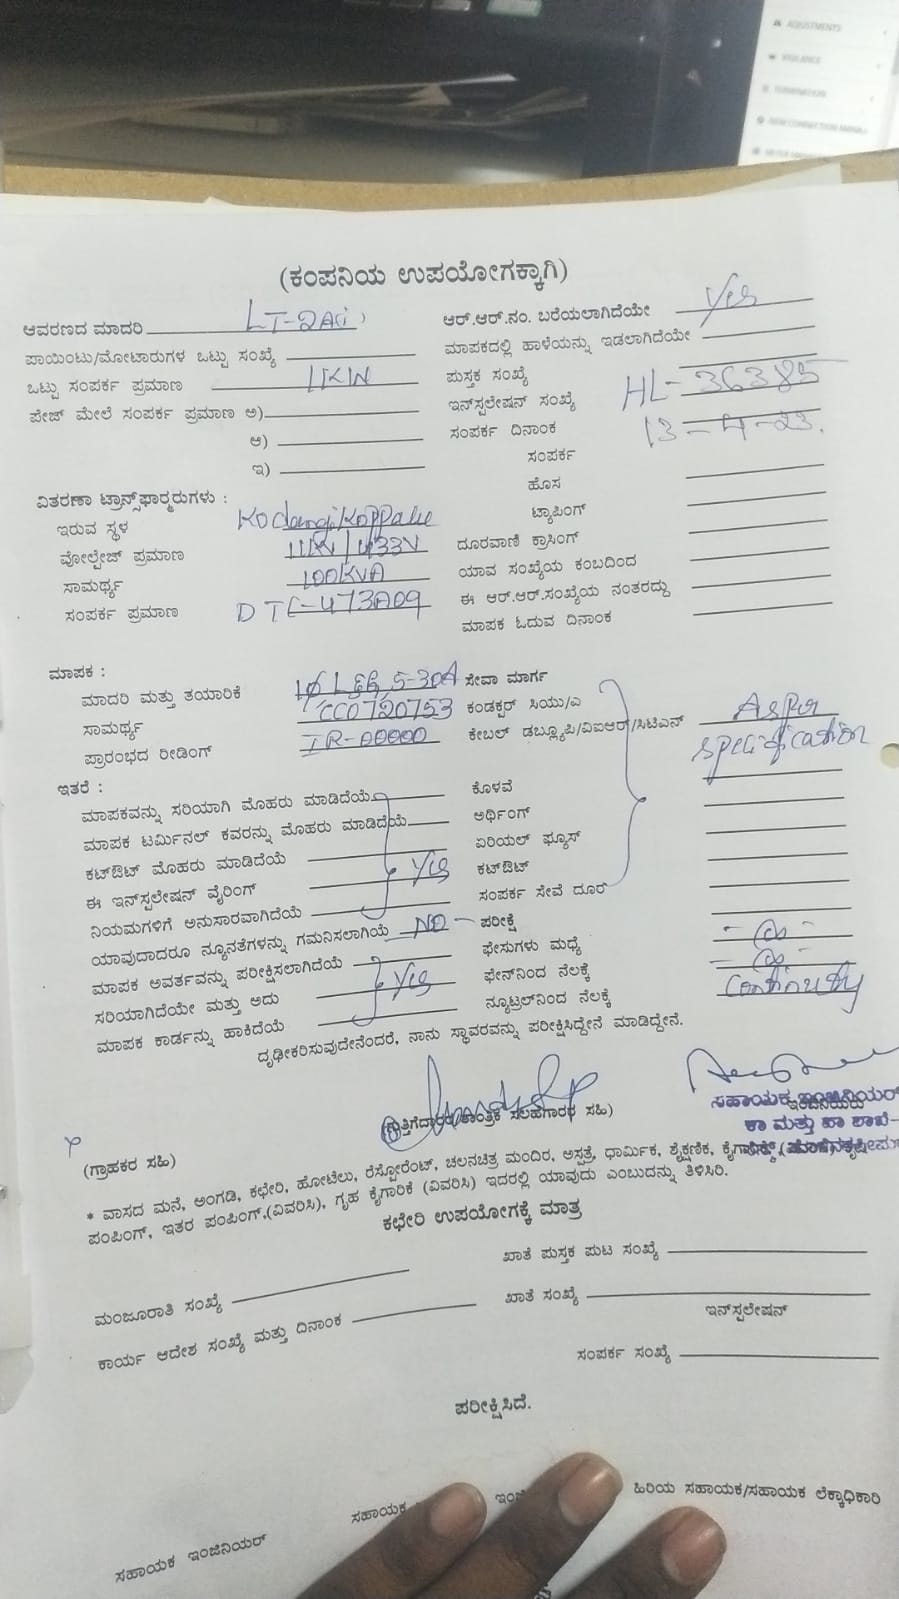 ADJUSTMENTS
VIGILANCE
TERMINATION
NEW CONNECTION MANA
(ಕಂಪನಿಯ ಉಪಯೋಗಕ್ಕಾಗಿ)
ಆವರಣದ ಮಾದರಿ
ಪಾಯಿಂಟು/ಮೋಟಾರುಗಳ ಒಟ್ಟು ಸಂಖ್ಯೆ
ಒಟ್ಟು ಸಂಪರ್ಕ ಪ್ರಮಾಣ 1KW
ಪೇಜ್ ಮೇಲೆ ಸಂಪರ್ಕ ಪ್ರಮಾಣ ಅ)
ಆ)
ಇ)
ಆರ್.ಆರ್.ನಂ. ಬರೆಯಲಾಗಿದೆಯೇ Yes
ಮಾಪಕದಲ್ಲಿ ಹಾಳೆಯನ್ನು ಇಡಲಾಗಿದೆಯೇ
ಪುಸ್ತಕ ಸಂಖ್ಯೆ
ಇನ್‌ಸ್ಪಲೇಷನ್ ಸಂಖ್ಯೆ HL-36385
ಸಂಪರ್ಕ ದಿನಾಂಕ 13-4-23.
ಸಂಪರ್ಕ
ಹೊಸ
ಟ್ಯಾಪಿಂಗ್
ದೂರವಾಣಿ ಕ್ರಾಸಿಂಗ್
ಯಾವ ಸಂಖ್ಯೆಯ ಕಂಬದಿಂದ
ಈ ಆರ್.ಆರ್.ಸಂಖ್ಯೆಯ ನಂತರದ್ದು
ಮಾಪಕ ಓದುವ ದಿನಾಂಕ
ವಿತರಣಾ ಟ್ರಾನ್ಸ್‌ಫಾರ್ಮರುಗಳು :
ಇರುವ ಸ್ಥಳ
ವೋಲ್ಟೇಜ್ ಪ್ರಮಾಣ 11KV/433V
ಸಾಮರ್ಥ್ಯ 100KVA
ಸಂಪರ್ಕ ಪ್ರಮಾಣ DTC-473A09
ಮಾಪಕ :
ಮಾದರಿ ಮತ್ತು ತಯಾರಿಕೆ 5-30A
ಸಾಮರ್ಥ್ಯ CC0720753
ಪ್ರಾರಂಭದ ರೀಡಿಂಗ್ IR-00000
ಸೇವಾ ಮಾರ್ಗ
ಕಂಡಕ್ಟರ್ ಸಿಯು/ಎ
ಕೇಬಲ್ ಡಬ್ಲ್ಯೂಪಿ/ವಿಐಆರ್/ಸಿಟಿಎನ್ As per
specification
ಇತರೆ :
ಮಾಪಕವನ್ನು ಸರಿಯಾಗಿ ಮೊಹರು ಮಾಡಿದೆಯೆ
ಮಾಪಕ ಟರ್ಮಿನಲ್ ಕವರನ್ನು ಮೊಹರು ಮಾಡಿದೆಯೆ
ಕಟ್ಔಟ್ ಮೊಹರು ಮಾಡಿದೆಯೆ
ಈ ಇನ್‌ಸ್ಪಲೇಷನ್ ವೈರಿಂಗ್ Yes
ನಿಯಮಗಳಿಗೆ ಅನುಸಾರವಾಗಿದೆಯೆ
ಯಾವುದಾದರೂ ನ್ಯೂನತೆಗಳನ್ನು ಗಮನಿಸಲಾಗಿಯೆ NO
ಮಾಪಕ ಅವರ್ತವನ್ನು ಪರೀಕ್ಷಿಸಲಾಗಿದೆಯೆ
ಸರಿಯಾಗಿದೆಯೇ ಮತ್ತು ಅದು Yes
ಮಾಪಕ ಕಾರ್ಡನ್ನು ಹಾಕಿದೆಯೆ
ಕೊಳವೆ
ಅರ್ಥಿಂಗ್
ಏರಿಯಲ್ ಫ್ಯೂಸ್
ಕಟ್ಔಟ್
ಸಂಪರ್ಕ ಸೇವೆ ದೂರ
ಪರೀಕ್ಷೆ
ಫೇಸುಗಳು ಮಧ್ಯೆ
ಫೇಸ್‌ನಿಂದ ನೆಲಕ್ಕೆ
ನ್ಯೂಟ್ರಲ್‌ನಿಂದ ನೆಲಕ್ಕೆ Continuty
ದೃಢೀಕರಿಸುವುದೇನೆಂದರೆ, ನಾನು ಸ್ಥಾವರವನ್ನು ಪರೀಕ್ಷಿಸಿದ್ದೇನೆ ಮಾಡಿದ್ದೇನೆ.
(ಗುತ್ತಿಗೆದಾರರ/ತಾಂತ್ರಿಕ ಸಲಹೆಗಾರರ ಸಹಿ)
ಸಹಾಯಕ ಇಂಜಿನಿಯರ್
ಕಾ ಮತ್ತು ಪಾ ಶಾಖೆ-
(ಗ್ರಾಹಕರ ಸಹಿ)
* ವಾಸದ ಮನೆ, ಅಂಗಡಿ, ಕಛೇರಿ, ಹೋಟೆಲು, ರೆಸ್ಟೋರೆಂಟ್, ಚಲನಚಿತ್ರ ಮಂದಿರ, ಅಸ್ಪತ್ರೆ, ಧಾರ್ಮಿಕ, ಶೈಕ್ಷಣಿಕ,
ಪಂಪಿಂಗ್, ಇತರ ಪಂಪಿಂಗ್,(ವಿವರಿಸಿ), ಗೃಹ ಕೈಗಾರಿಕೆ (ವಿವರಿಸಿ) ಇದರಲ್ಲಿ ಯಾವುದು ಎಂಬುದನ್ನು ತಿಳಿಸಿರಿ.
ಕಛೇರಿ ಉಪಯೋಗಕ್ಕೆ ಮಾತ್ರ
ಮಂಜೂರಾತಿ ಸಂಖ್ಯೆ
ಕಾರ್ಯ ಆದೇಶ ಸಂಖ್ಯೆ ಮತ್ತು ದಿನಾಂಕ
ಖಾತೆ ಪುಸ್ತಕ ಪುಟ ಸಂಖ್ಯೆ
ಖಾತೆ ಸಂಖ್ಯೆ
ಇನ್‌ಸ್ಪಲೇಷನ್
ಸಂಪರ್ಕ ಸಂಖ್ಯೆ
ಪರೀಕ್ಷಿಸಿದೆ.
ಸಹಾಯಕ ಇಂಜಿನಿಯರ್
ಸಹಾಯಕ
ಹಿರಿಯ ಸಹಾಯಕ/ಸಹಾಯಕ ಲೆಕ್ಕಾಧಿಕಾರಿ